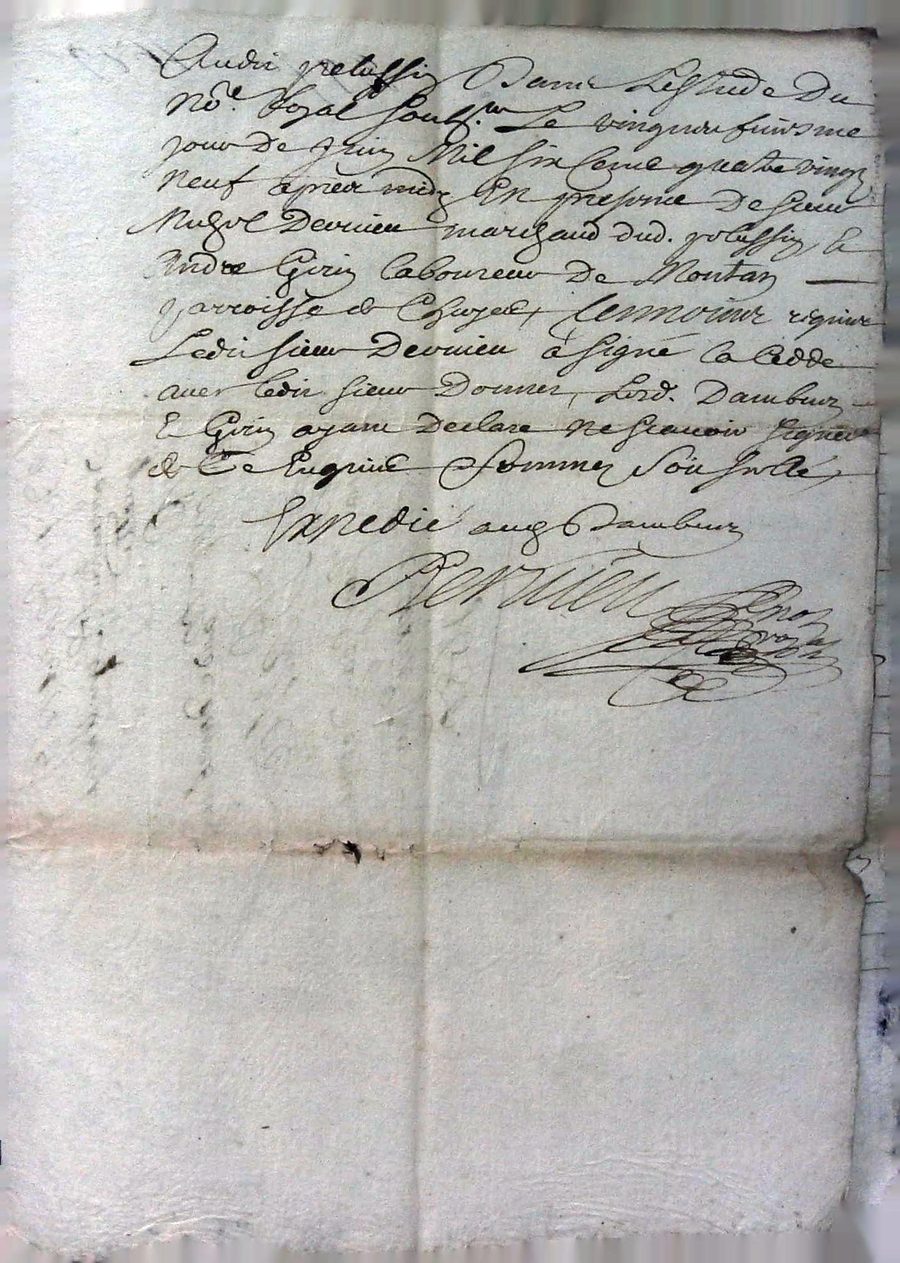 Audit pelussin Dans Lestude Du
No.re Royal soubs.né Le vingt neufuiesme
jour de Juin Mil six Cent quatre vingt
Neuf apres midy En presence De sieur
Michel Dervieu marchand dud. pelussin, Et
Andre Girin laboureur De Montan
parroisse de Chuyer, tesmoins requis
Ledit sieur Dervieu à signé la Cedde
avec ledit sieur Donnet, Led. Dambuin
Et Girin ayant Declaré Ne scavoir signer
de Ce Enquis Et Sommes Soit
Expedié aud Dambuin
Dervieu